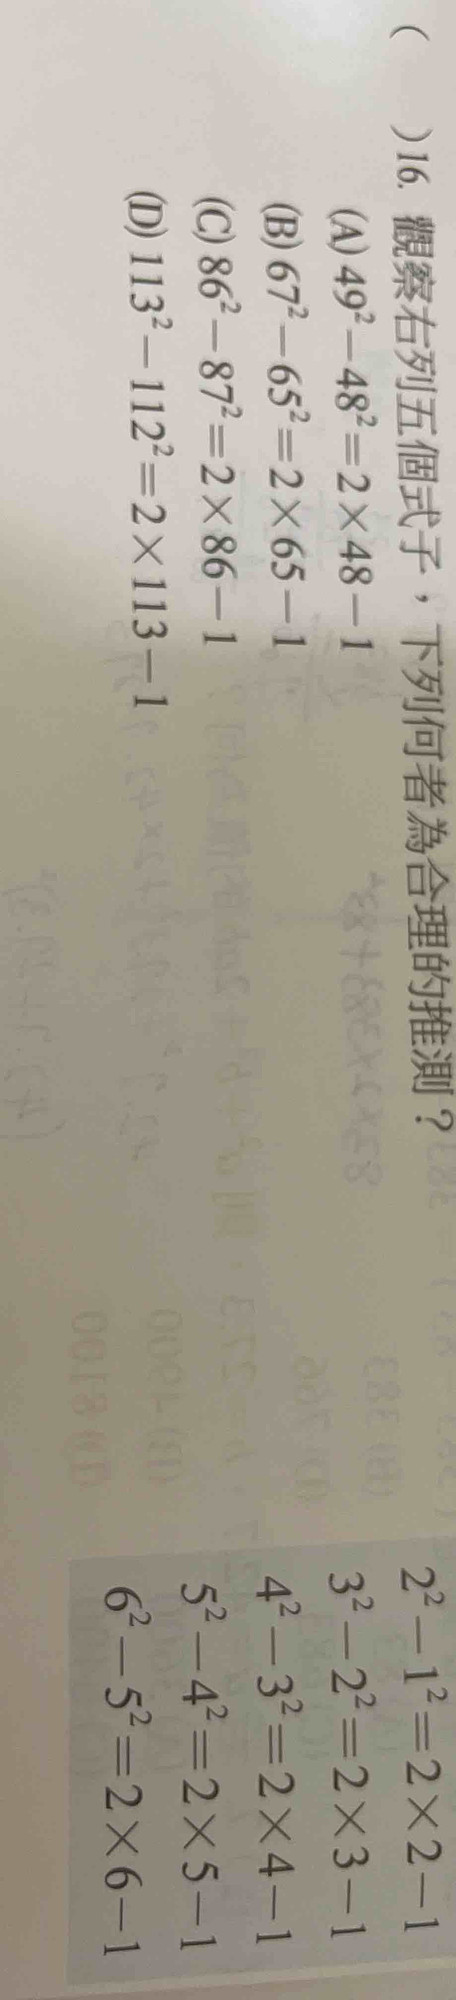 (　　)16. 觀察右列五個式子，下列何者為合理的推測？
(A) 49²－48²＝2×48－1
(B) 67²－65²＝2×65－1
(C) 86²－87²＝2×86－1
(D) 113²－112²＝2×113－1
2²－1²＝2×2－1
3²－2²＝2×3－1
4²－3²＝2×4－1
5²－4²＝2×5－1
6²－5²＝2×6－1